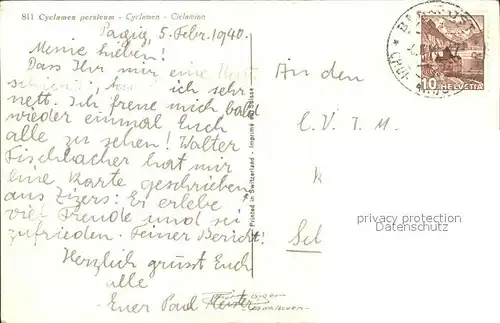 811 Cyclamen persicum - Cyclamen - Ciclamino
5. Febr. 1940.
Meine Lieben!
Dass Ihr mir eine
ich sehr
nett. Ich freue mich bald
wieder einmal Euch
alle zu sehen! Walter
Fischbacher hat mir
eine Karte geschrieben
aus Zizers: Er erlebe
viel Freude und sei
zufrieden. Feiner Bericht!
Herzlich grüsst Euch
alle
Euer Paul Meister
Printed in Switzerland - Imprimé en Suisse
An den
C. V. J. M.
10 HELVETIA
privacy protection
Datenschutz